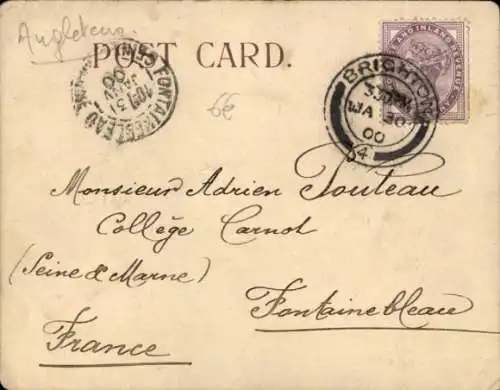 Angleterre
POST CARD.
6€
FONTAINEBLEAU
10E 31
JANV
00
BRIGHTON
3 30 PM
JA 30
00
64
AND INLAND REVENUE
Monsieur Adrien Pouteau
Collège Carnot
(Seine & Marne)
Fontainebleau
France